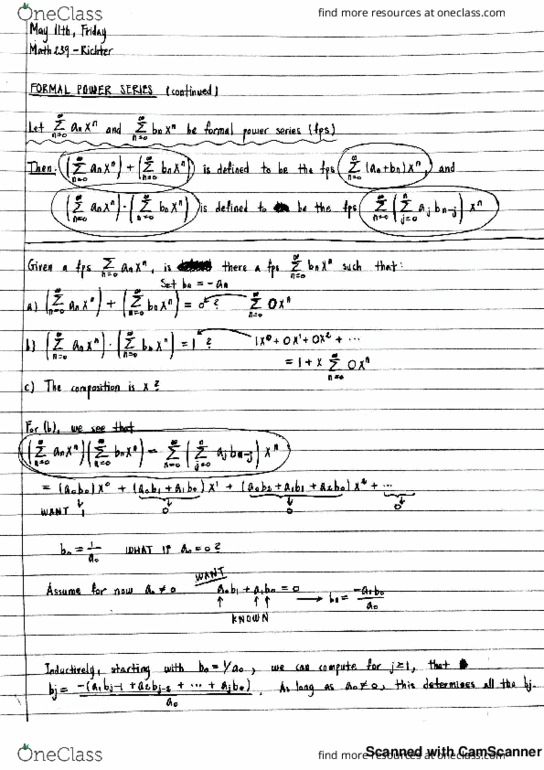 OneClass
find more resources at oneclass.com
May 11th, Friday
Math 239 - Richter
FORMAL POWER SERIES (continued)
Let ∑_{n=0}^{∞} a_n x^n and ∑_{n=0}^{∞} b_n x^n be formal power series (fps)
Then: (∑_{n=0}^{∞} a_n x^n) + (∑_{n=0}^{∞} b_n x^n) is defined to be the fps ∑_{n=0}^{∞} (a_n + b_n) x^n, and
(∑_{n=0}^{∞} a_n x^n) · (∑_{n=0}^{∞} b_n x^n) is defined to be the fps ∑_{n=0}^{∞} (∑_{j=0}^{n} a_j b_{n-j}) x^n
Given a fps ∑_{n=0}^{∞} a_n x^n, is there a fps ∑_{n=0}^{∞} b_n x^n such that:
Set b_n = -a_n
a) (∑_{n=0}^{∞} a_n x^n) + (∑_{n=0}^{∞} b_n x^n) = 0? ∑_{n=0}^{∞} 0x^n
b) (∑_{n=0}^{∞} a_n x^n) · (∑_{n=0}^{∞} b_n x^n) = 1? 1x^0 + 0x^1 + 0x^2 + ...
= 1 + x ∑_{n=0}^{∞} 0x^n
c) The composition is x?
For (b), we see that
(∑_{n=0}^{∞} a_n x^n)(∑_{n=0}^{∞} b_n x^n) = ∑_{n=0}^{∞} (∑_{j=0}^{n} a_j b_{n-j}) x^n
= (a_0 b_0) x^0 + (a_0 b_1 + a_1 b_0) x^1 + (a_0 b_2 + a_1 b_1 + a_2 b_0) x^2 + ...
WANT 1 0 0 0
b_0 = 1/a_0 WHAT IF a_0 = 0?
WANT
Assume for now a_0 ≠ 0 a_0 b_1 + a_1 b_0 = 0 → b_1 = -a_1 b_0 / a_0
KNOWN
Inductively, starting with b_0 = 1/a_0, we can compute for j ≥ 1, that
b_j = -(a_1 b_{j-1} + a_2 b_{j-2} + ... + a_j b_0) / a_0. As long as a_0 ≠ 0, this determines all the b_j.
Scanned with CamScanner
OneClass
find more resources at oneclass.com